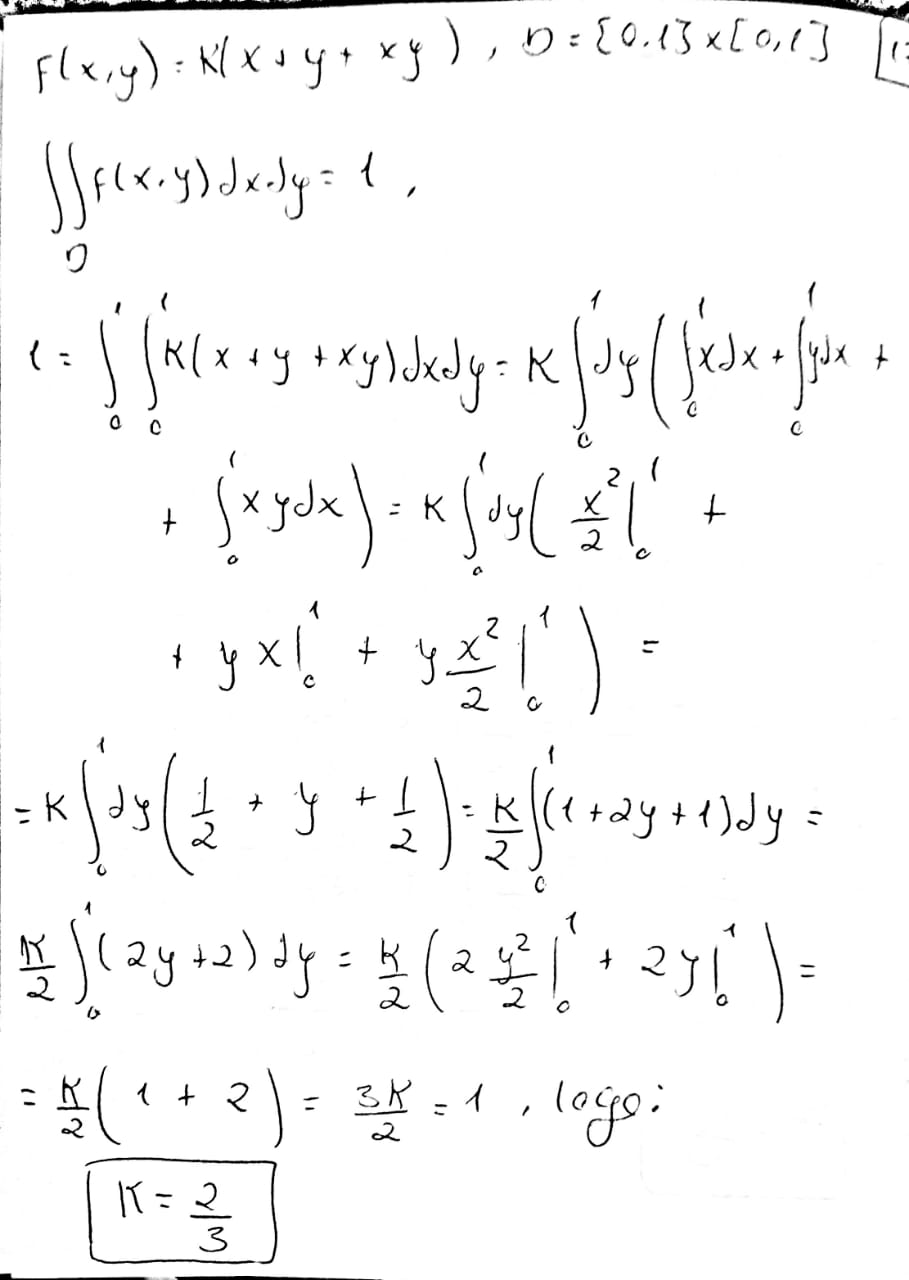 F(x,y) = K(x + y + xy), D = [0,1] x [0,1]
∬_D F(x,y) dx dy = 1,
1 = ∫₀¹ ∫₀¹ K(x + y + xy) dx dy = K ∫₀¹ dy ( ∫₀¹ x dx + ∫₀¹ y dx +
+ ∫₀¹ xy dx ) = K ∫₀¹ dy ( x²/2 |₀¹ +
+ y x |₀¹ + y x²/2 |₀¹ ) =
= K ∫₀¹ dy ( 1/2 + y + 1/2 ) = K/2 ∫₀¹ (1 + 2y + 1) dy =
K/2 ∫₀¹ (2y + 2) dy = K/2 ( 2 y²/2 |₀¹ + 2y |₀¹ ) =
= K/2 ( 1 + 2 ) = 3K/2 = 1, logo:
K = 2/3